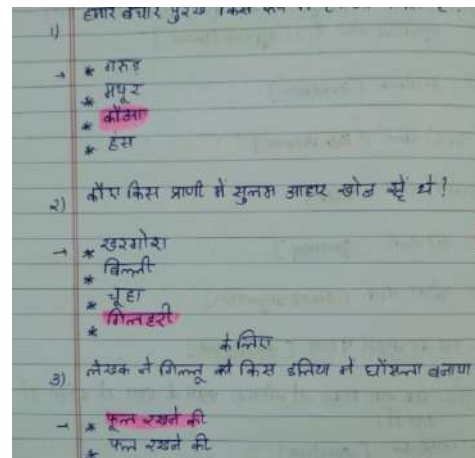 हमारे बेचारे पुरखे किस रूप में
1)
→ * गरुड़
* मयूर
* कौआ
* हंस
2) कौए किस प्राणी में सुलभ आहार खोज रहें थे?
→ * खरगोश
* बिल्ली
* चूहा
* गिलहरी
*
के लिए
3) लेखक ने गिल्लू को किस डलिया में घोंसला बनाया
→ * फूल रखने की
* फल रखने की